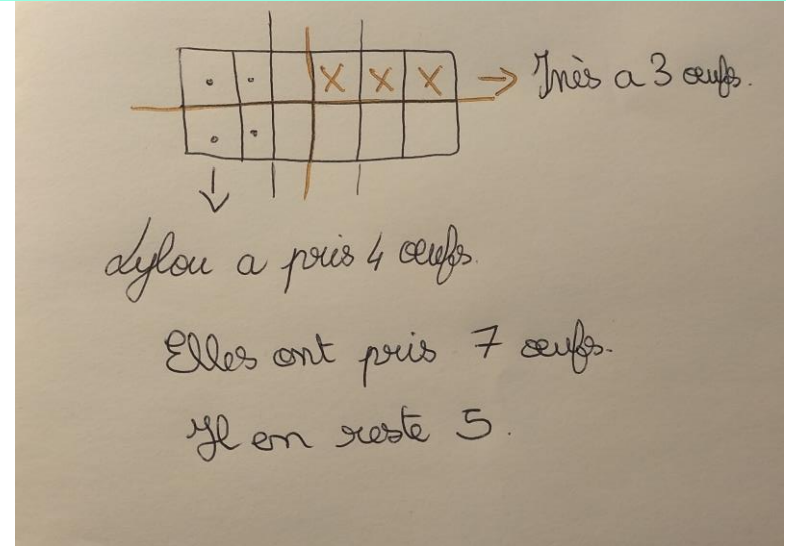 X X X → Inès a 3 œufs.
Lylou a pris 4 œufs.
Elles ont pris 7 œufs.
Il en reste 5.